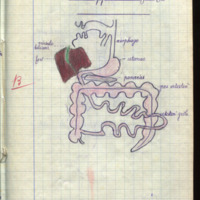 vésicule
biliaire
œsophage
foie
estomac
pancréas
gros intestin
intestin grêle